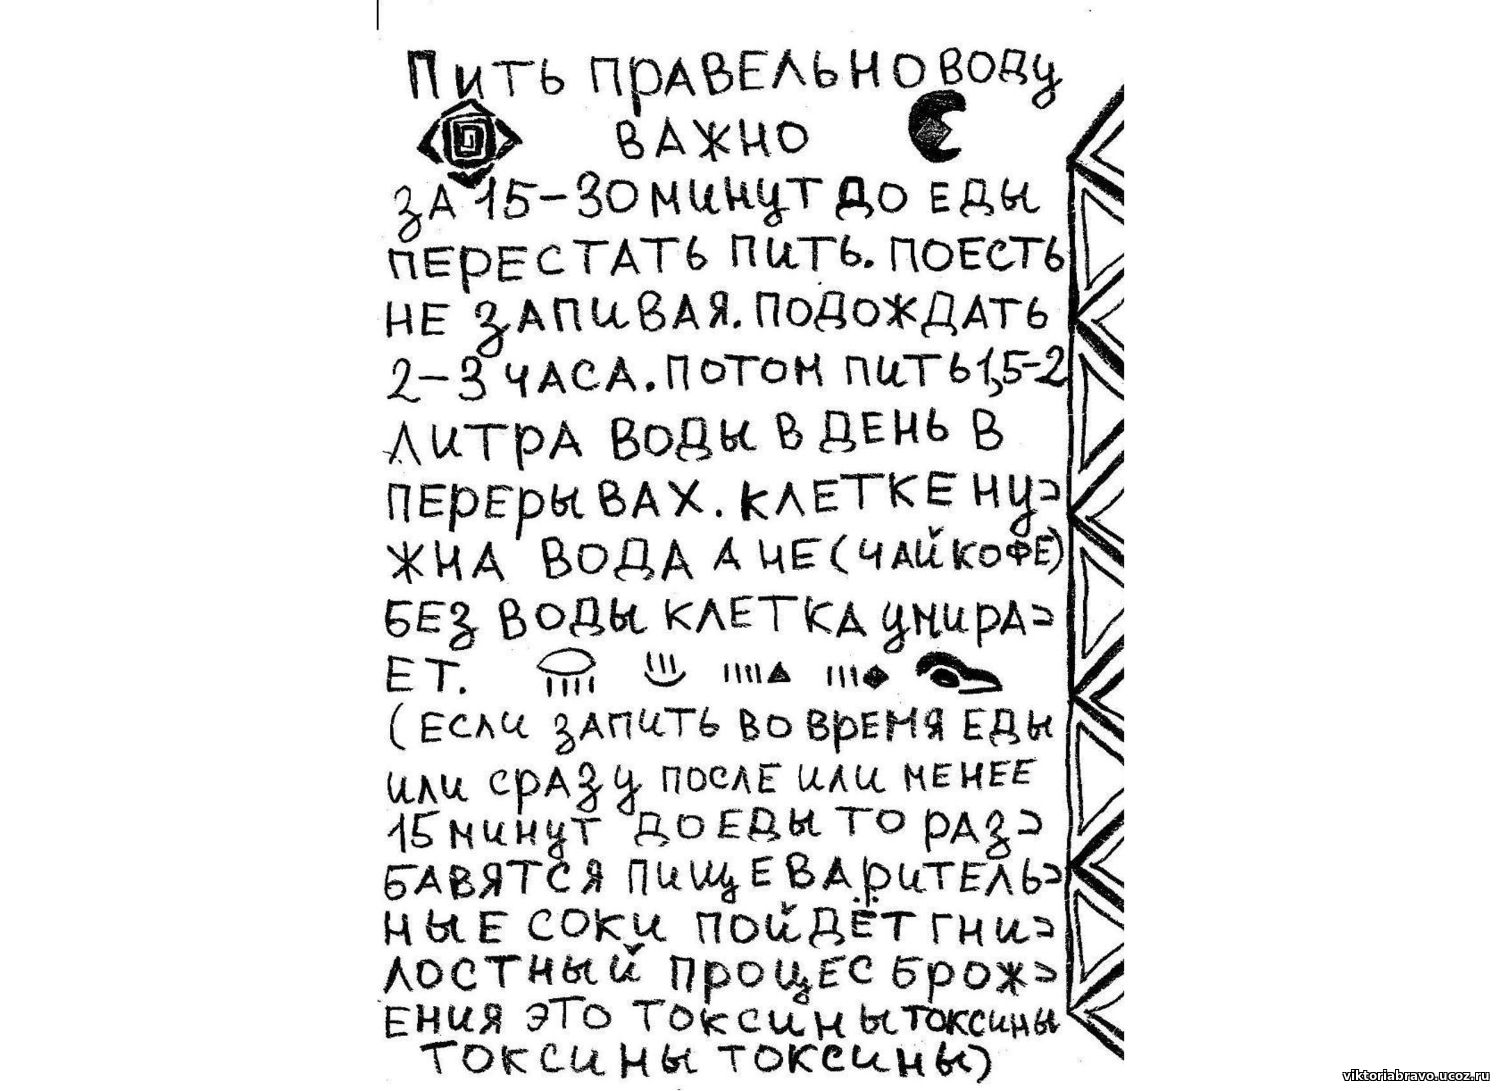 Пить правельно воду
важно
за 15-30 минут до еды
перестать пить. поесть
не запивая. подождать
2-3 часа. потом пить 1,5-2
литра воды в день в
перерывах. клетке ну=
жна вода а не (чай кофе)
без воды клетка умира=
ет.
(если запить во время еды
или сразу после или менее
15 минут до еды то раз=
бавятся пищеваритель=
ные соки пойдёт гни=
лостный процес брож=
ения это токсины токсины
токсины токсины)
viktoriabravo.ucoz.ru